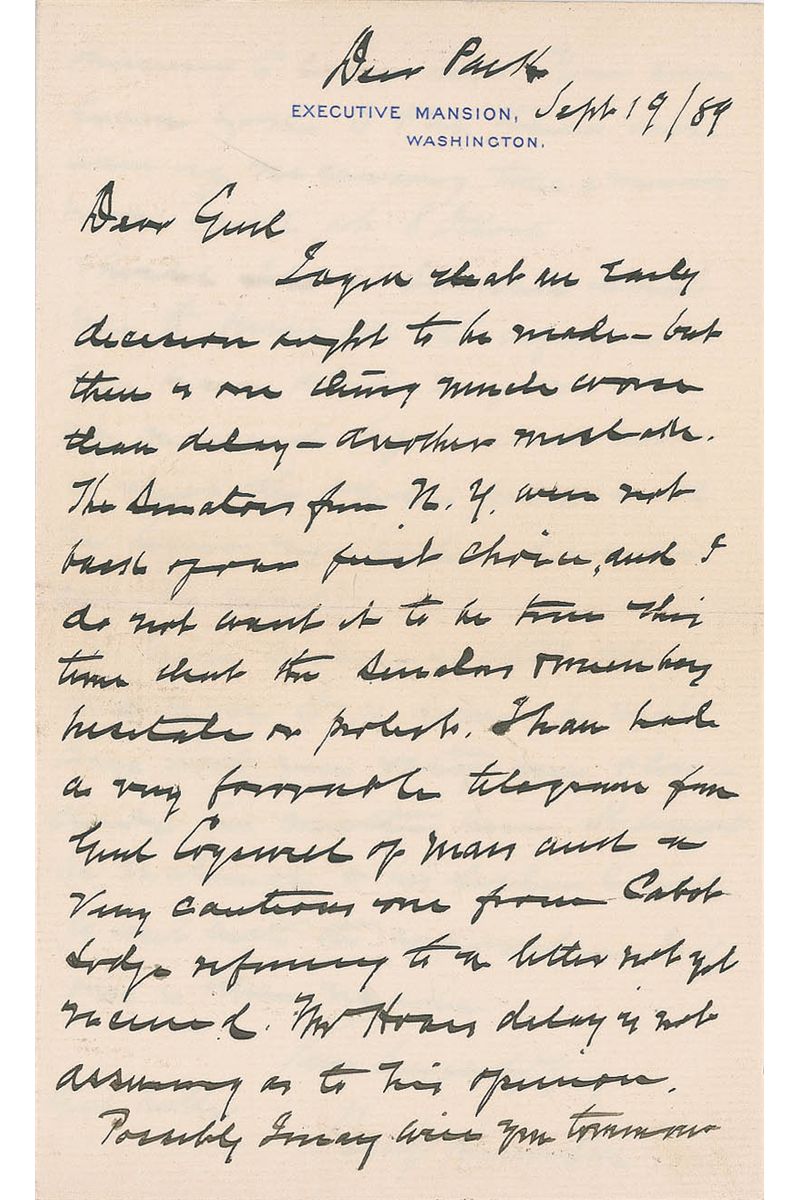 Deer Park
EXECUTIVE MANSION, Sept 19/89
WASHINGTON.
Dear Genl
I agree that an early
decision ought to be made – but
there is one thing much worse
than delay – another mistake.
The Senators from N. Y. were not
back of our first choice, and I
do not want it to be true this
time that the Senators
hesitate or protest. I have had
a very favorable telegram from
Genl Cogswell of Mass and a
very cautious one from Cabot
Lodge referring to a letter not yet
received. Mr Hoars delay is not
assuring as to his opinion.
Possibly I may wire you tomorrow